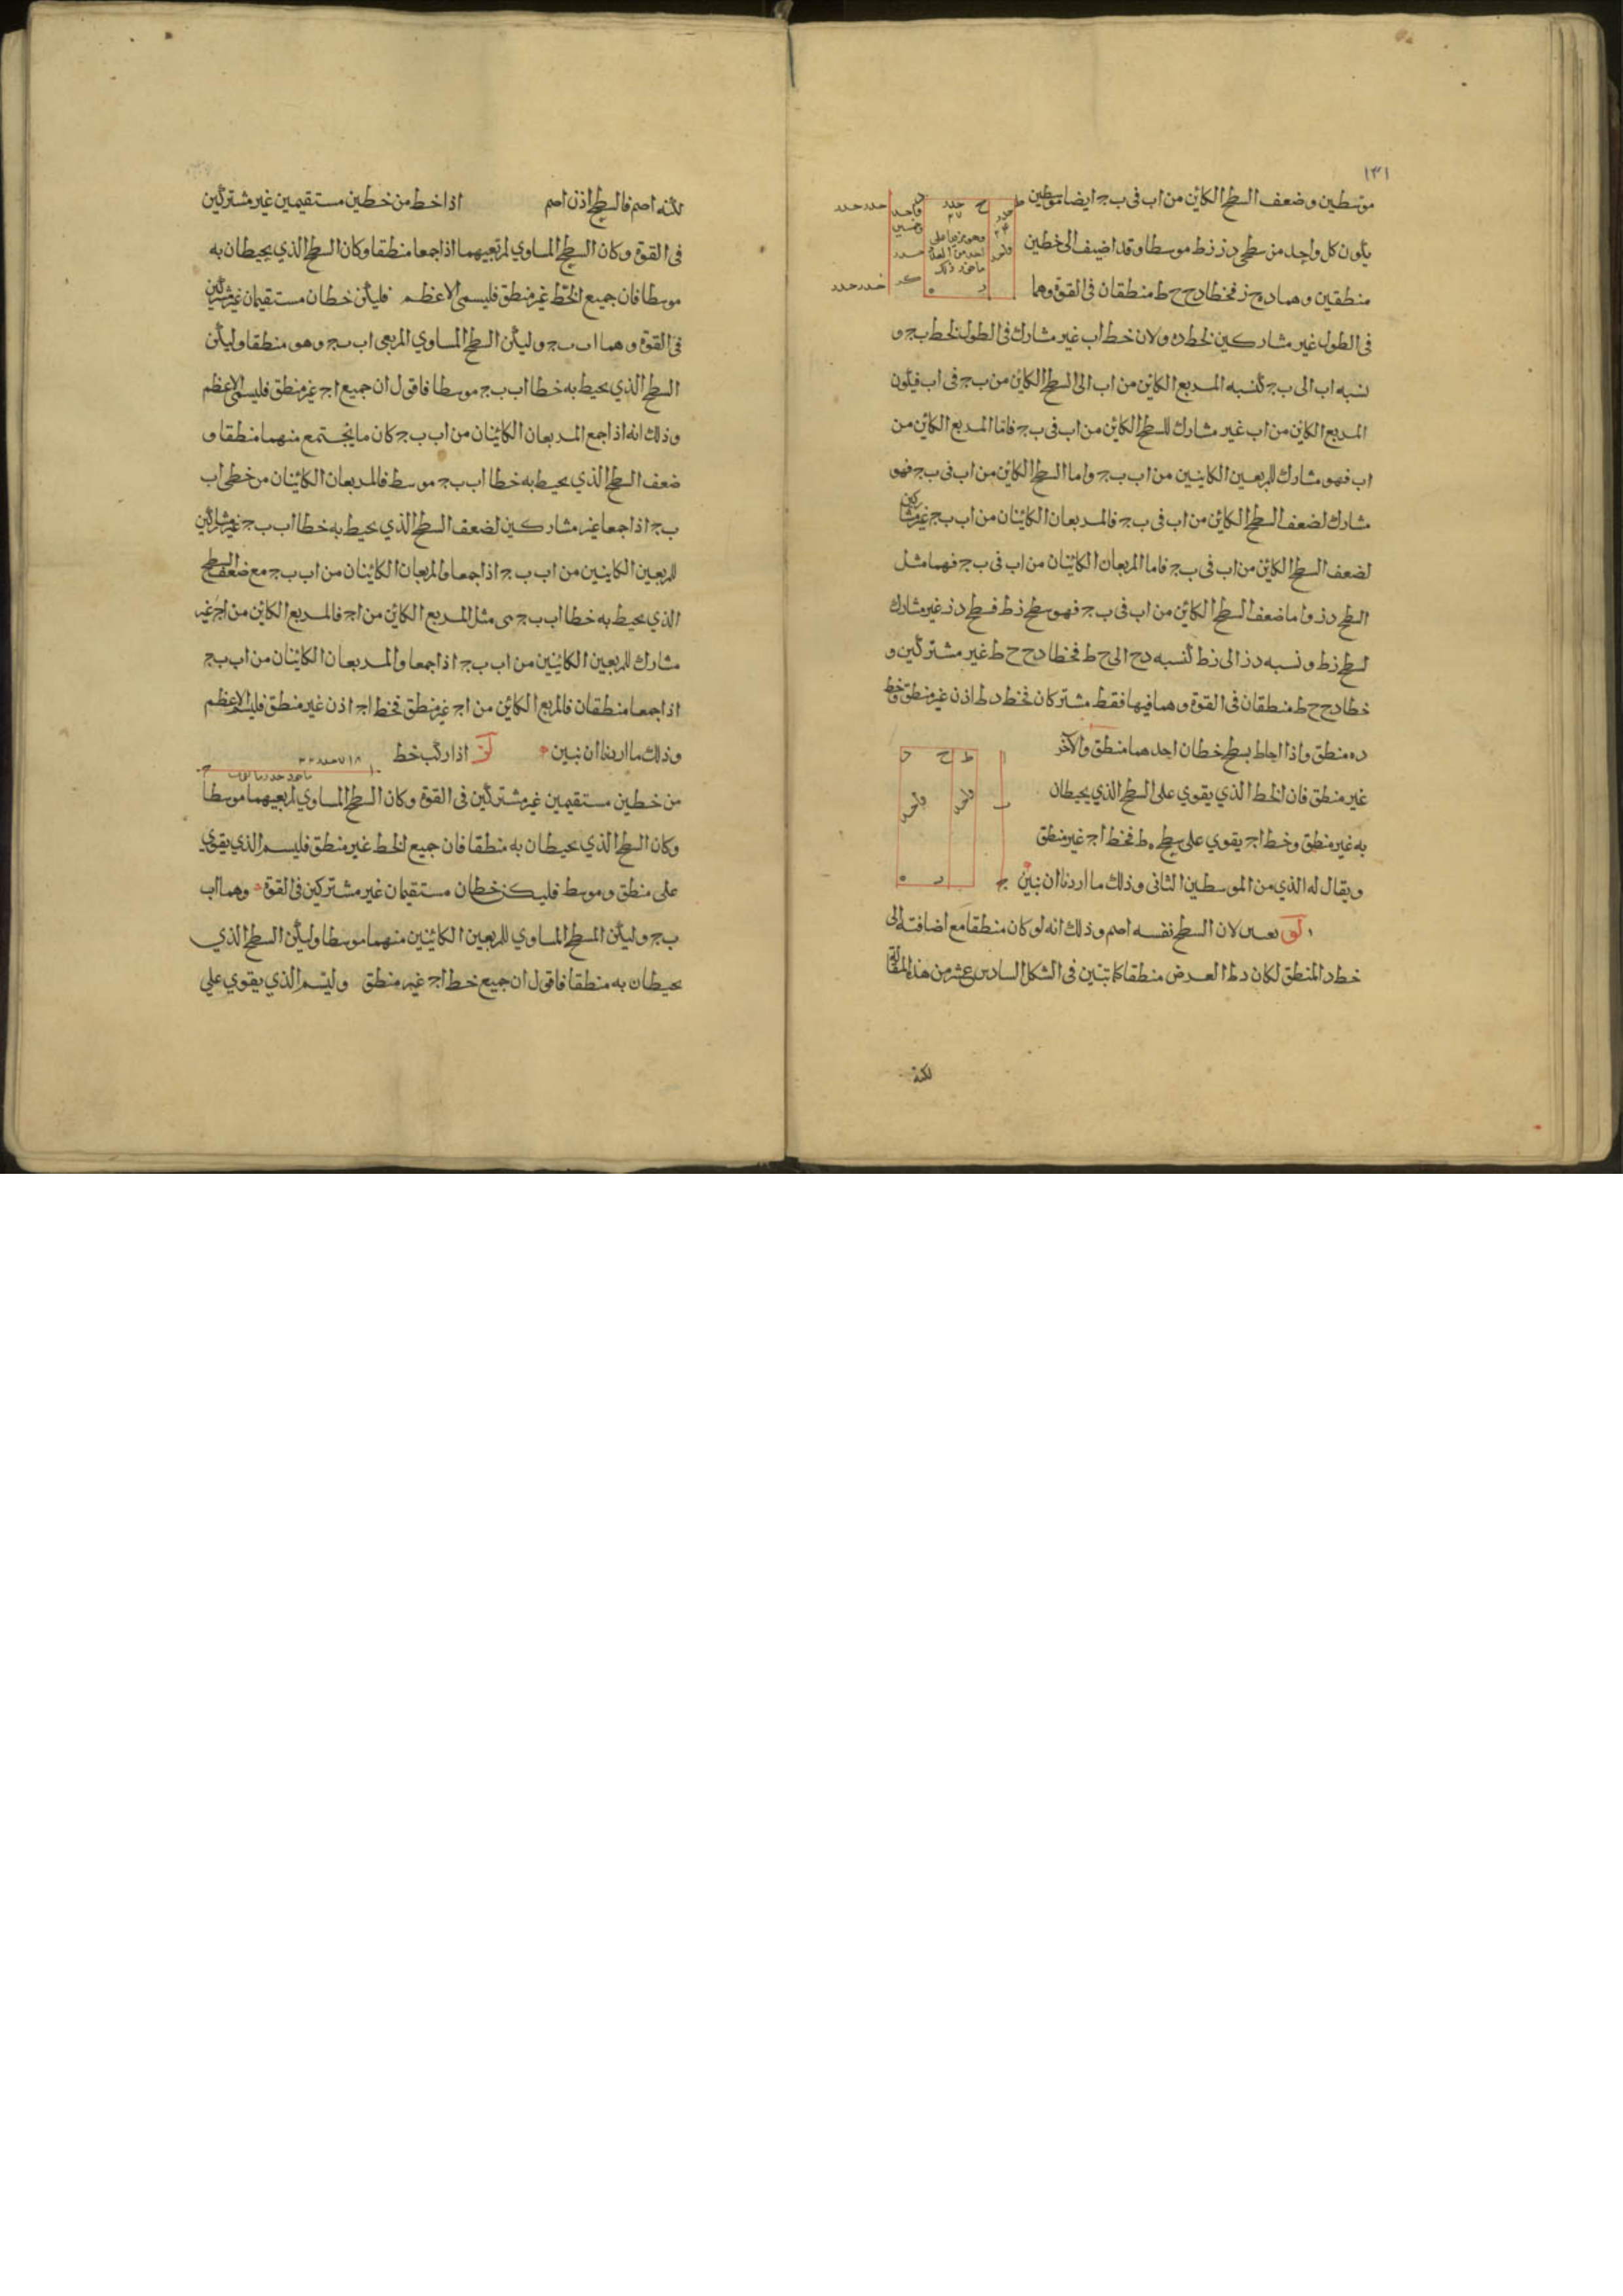 ١٣١
موسطين وضعف السطح الكائن من اب فى ب ج ايضا موسطين
يكون كل واحد من سطحى د ز ز ط موسطا وقد اضيف الى خطين
منطقين وهما د ح ز فخطا د ح ح ط منطقان فى القوة وهما
فى الطول غير مشاركين لخط د ه ولان خط اب غير مشارك فى الطول لخط ب ج و
نسبه اب الى ب ج كنسبه المربع الكائن من اب الى السطح الكائن من ب ج فى اب فيكون
المربع الكائن من اب غير مشارك للسطح الكائن من اب فى ب ج فاما المربع الكائن من
اب فهو مشارك للمربعين الكاينين من اب ب ج واما السطح الكائن من اب فى ب ج فهو
مشارك لضعف السطح الكائن من اب فى ب ج فالمربعان الكائنان من اب ب ج غير مشاركين
لضعف السطح الكائن من اب فى ب ج فاما المربعان الكائنان من اب فى ب ج فهما مثل
السطح د ز واما ضعف السطح الكائن من اب فى ب ج فهو سطح ز ط فسطح د ز غير مشارك
لسطح ز ط ونسبه د ز الى ز ط كنسبه د ح الى ح ط فخطا د ح ح ط غير مشتركين و
خطا د ح ح ط منطقان فى القوة وهما فيها فقط مشتركان فخط د ط اذن غير منطق وخط
د ه منطق واذا احاط بسطح خطان احدهما منطق والآخر
غير منطق فان الخط الذي يقوي على السطح الذي يحيطان
به غير منطق وخط اج يقوي على سطح ه ط فخط اج غير منطق
ويقال له الذي من الموسطين الثانى وذلك ما اردنا ان نبين
لو لان السطح نفسه اصم وذلك انه لو كان منطقا مع اضافته الى
خط د المنطق لكان د ط العرض منطقا كما تبين فى الشكل السادس عشر من هذه المقالة
لكنه
لكنه اصم فالسطح اذن اصم اذا خط من خطين مستقيمين غير مشتركين
فى القوة وكان السطح المساوي لمربعيهما اذا جمعا منطقا وكان السطح الذي يحيطان به
موسطا فان جميع الخط غير منطق فليسمى الاعظم فليكن خطان مستقيمان غير مشتركين
فى القوة وهما اب ب ج وليكن السطح المساوي لمربعى اب ب ج وهو منطقا وليكن
السطح الذي يحيط به خطا اب ب ج موسطا فاقول ان جميع اج غير منطق فليسمى الاعظم
وذلك انه اذا جمع المربعان الكائنان من اب ب ج كان ما يجتمع منهما منطقا و
ضعف السطح الذي يحيط به خطا اب ب ج موسط فالمربعان الكائنان من خطى اب
ب ج اذا جمعا غير مشاركين لضعف السطح الذي يحيط به خطا اب ب ج غير مشاركين
للمربعين الكاينين من اب ب ج اذا جمعا والمربعان الكائنان من اب ب ج مع ضعف السطح
الذي يحيط به خطا اب ب ج مثل المربع الكائن من اج فالمربع الكائن من اج غير
مشارك للمربعين الكائنين من اب ب ج اذا جمعا والمربعان الكائنان من اب ب ج
اذا جمعا منطقان فالمربع الكائن من اج غير منطق فخط اج اذن غير منطق فليسم الاعظم
وذلك ما اردنا ان نبين لز اذا ركب خط
من خطين مستقيمين غير مشتركين فى القوة وكان السطح المساوي لمربعيهما موسطا
وكان السطح الذي يحيطان به منطقا فان جميع الخط غير منطق فليسم الذي يقوي
على منطق وموسط فليكن خطان مستقيمان غير مشتركين فى القوة وهما اب
ب ج وليكن المسطح المساوي للمربعين الكائنين منهما موسطا وليكن السطح الذي
يحيطان به منطقا فاقول ان جميع خط اج غير منطق وليسم الذي يقوي على